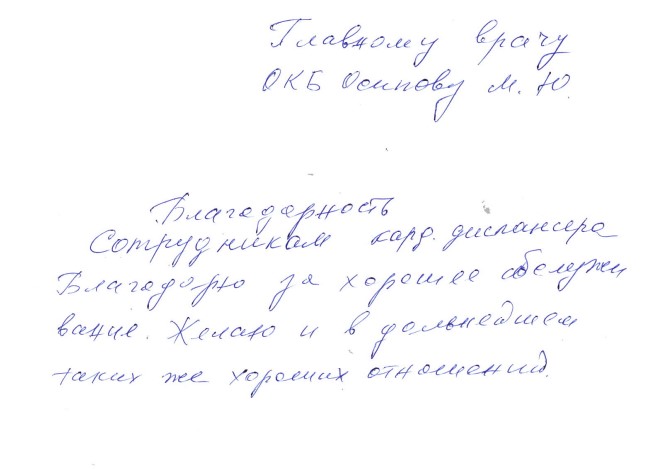 Главному врачу
ОКБ Осипову М.Ю.
Благодарность
Сотрудникам кард. диспансера
Благодарю за хорошее обслужи
вание. Желаю и в дальнейшем
таких же хороших отношений.